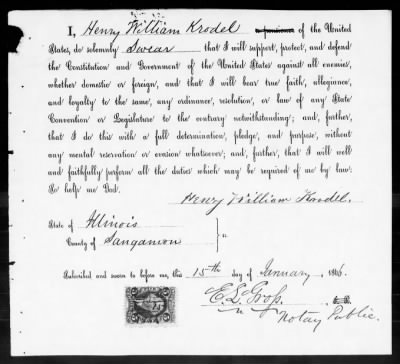 I, Henry William Krodel of the United
States, do solemnly Swear that I will support, protect, and defend
the Constitution and Government of the United States against all enemies,
whether domestic or foreign, and that I will bear true faith, allegiance,
and loyalty to the same, any ordinance, resolution, or law of any State
Convention or Legislature to the contrary notwithstanding; and, further,
that I do this with a full determination, pledge, and purpose, without
any mental reservation or evasion whatsoever; and, further, that I will well
and faithfully perform all the duties which may be required of me by law:
So help me God.
Henry William Krodel.
State of Illinois
County of Sangamon
Subscribed and sworn to before me, this 15th day of January, 1866.
E. L. Gross
Notary Public.